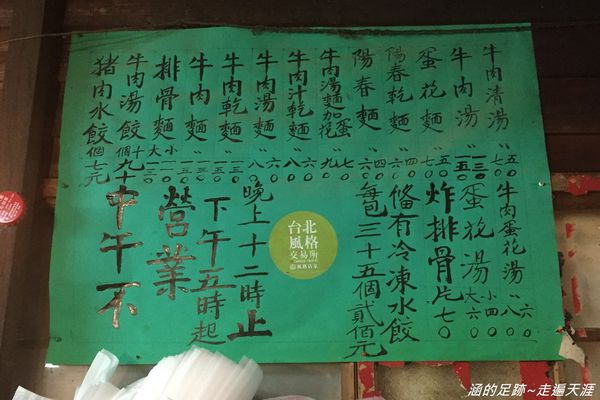 牛肉清湯 〃
牛肉湯 〃
蛋花麵 〃 七〇 五〇
陽春乾麵 〃 六〇 四〇
陽春麵 〃 六〇 四〇
牛肉湯麵加蛋 九〇 七〇
牛肉汁乾麵 〃 八〇 六〇
牛肉湯麵 〃 八〇 六〇
牛肉乾麵
牛肉麵
排骨麵 大 小
牛肉湯餃 十個 九十
猪肉水餃 個七元
牛肉蛋花湯 〃 八〇 六〇
蛋花湯 大六〇 小四〇
炸排骨片 七〇
俻有冷凍水餃
每包三十五個貳佰元
晚上十二時止
下午五時起
營業
中午不
台北
風格
交易所
風格店家
涵的足跡~走遍天涯